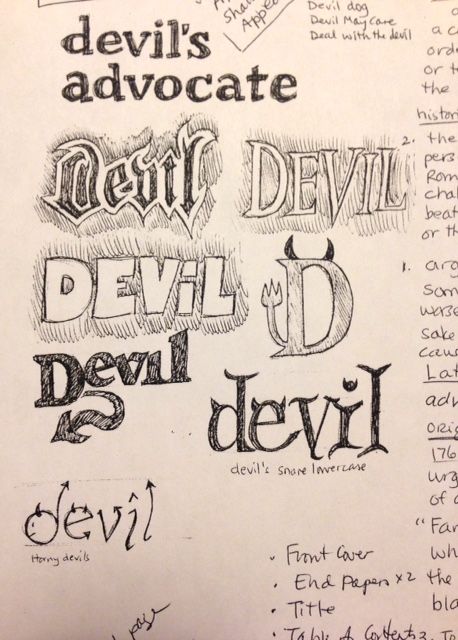 Sha
Appe
Devil dog
Devil May Care
Deal with the devil
devil's
advocate
Devil
DEVIL
DEViL
D
Devil
devil
devil's snare lowercase
devil
Horny devils
a c
orde
or t
the
histori
2. the
pers
Rom
chal
beat
or th
1. arg
som
worse
sake
caus
Lat
adv
orig
176
urg
of
"Far
wh
the
bla
• Front Cover
• End Papers x2
• Title
• Table of Contents
page